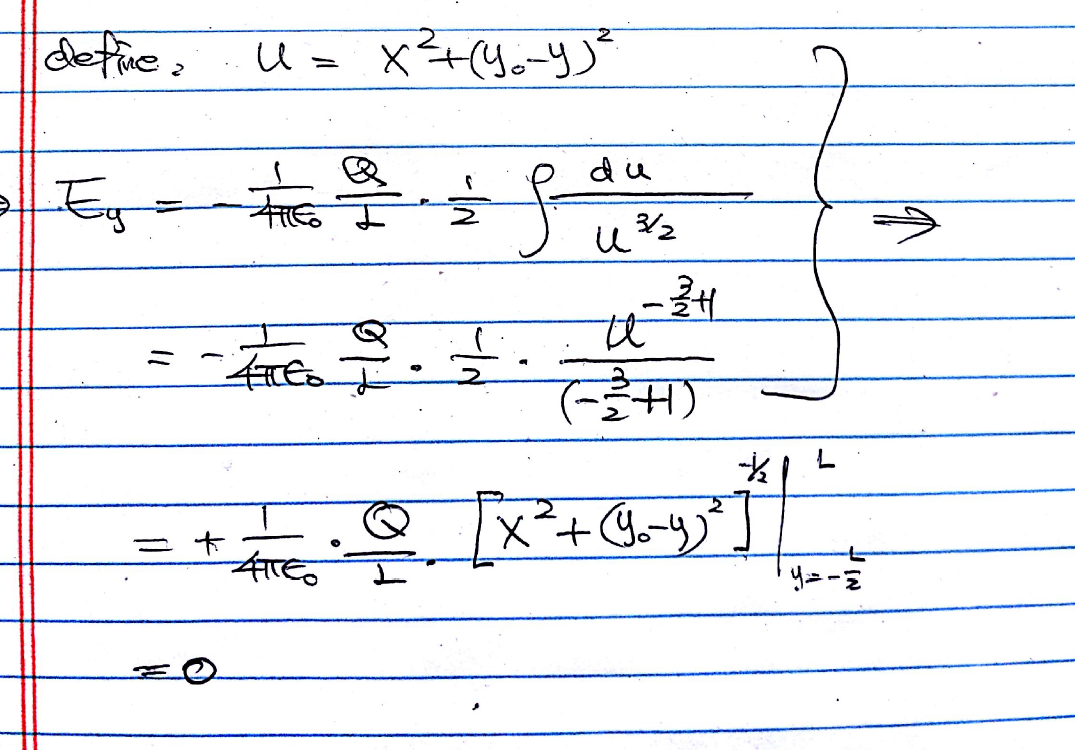 define, u = x²+(y₀-y)²
E_y = - 1/4πε₀ Q/L · 1/2 ∫ du/u^{3/2} ⇒
= - 1/4πε₀ Q/L · 1/2 · u^{-3/2+1}/(-3/2+1)
= + 1/4πε₀ · Q/L · [x²+(y₀-y)²]^{-1/2} |_{y=-L/2}^{L}
= 0